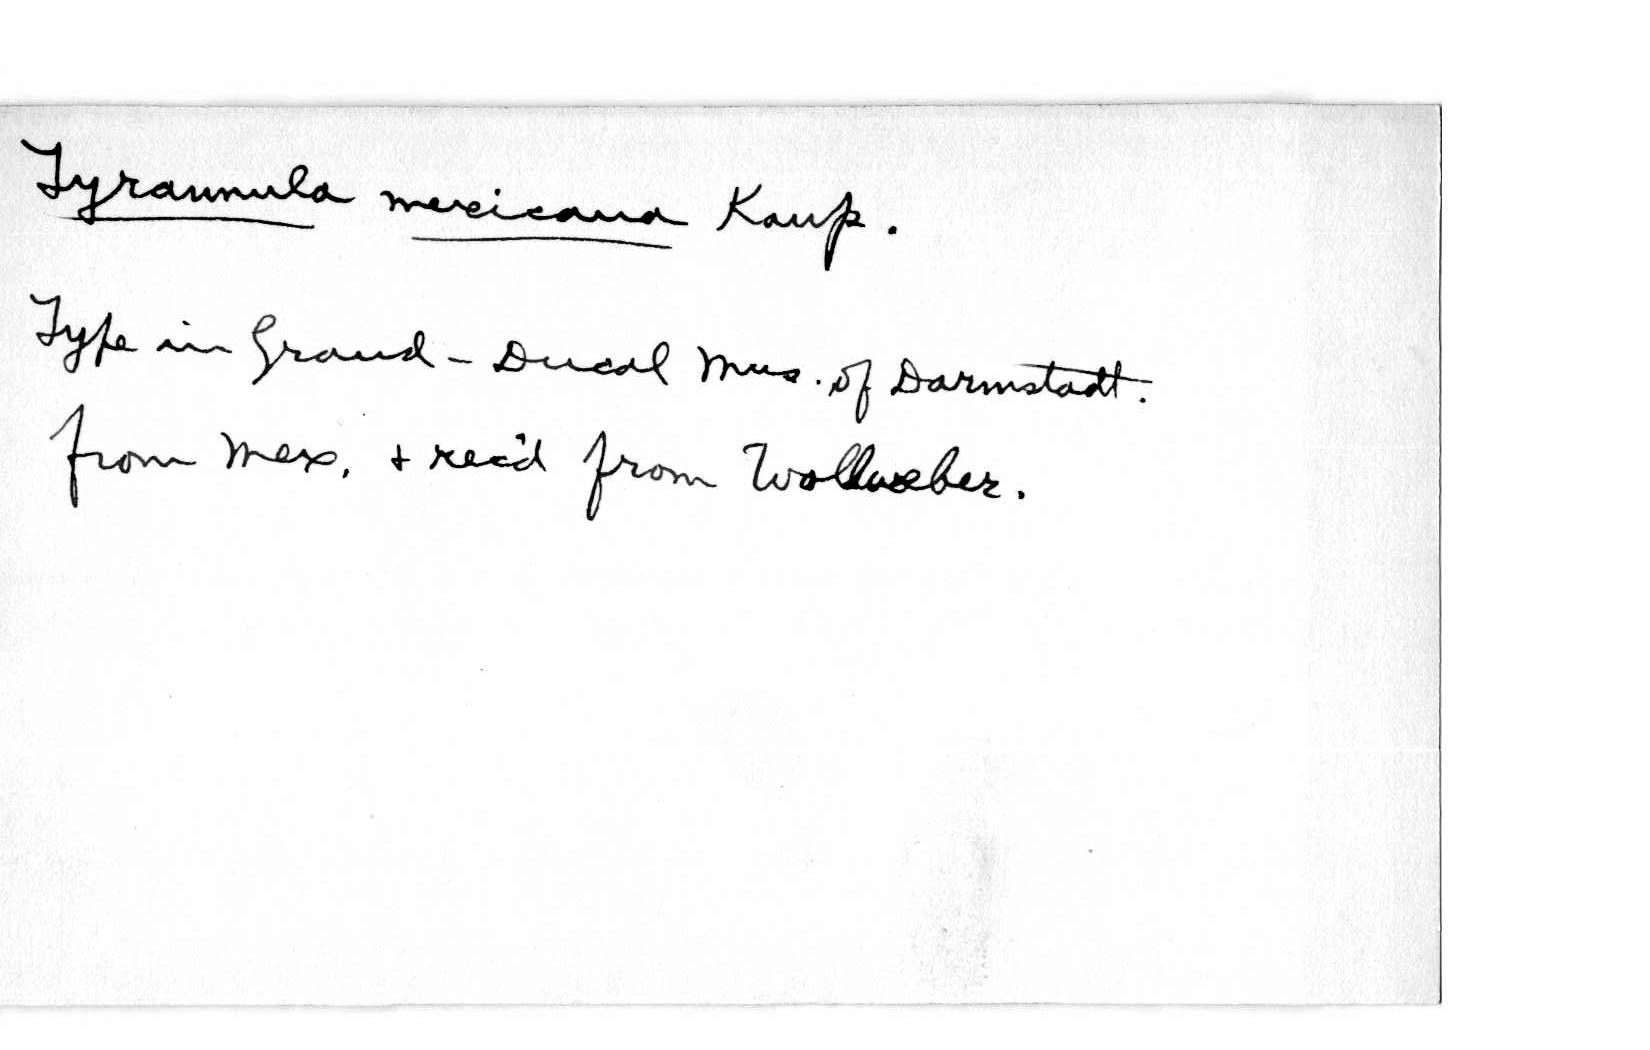 Tyrannula mexicana Kaup.
Type in Grand-Ducal Mus. of Darmstadt.
from Mex. + rec'd from Wollweber.